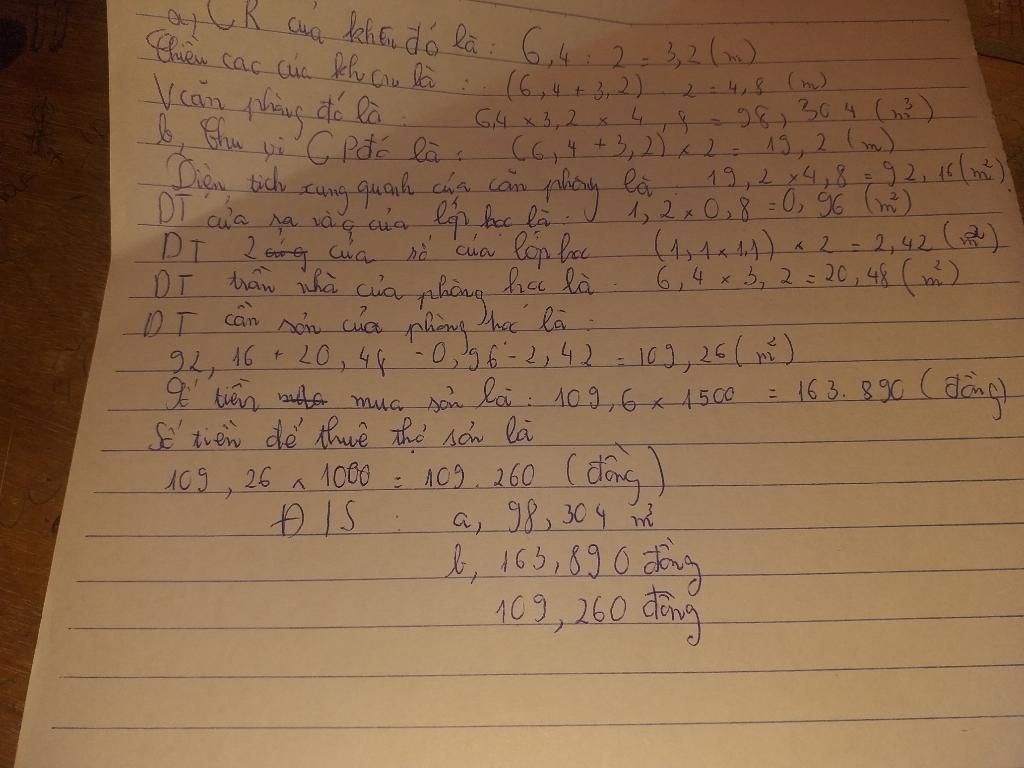 a, CR của khu đó là: 6,4 : 2 = 3,2 (m)
Chiều cac của kh là: (6,4 + 3,2) . 2 = 4,8 (m)
V căn phòng đó là: 6,4 × 3,2 × 4,8 = 98,304 (m³)
b, Chu vi CP đó là: (6,4 + 3,2) × 2 = 19,2 (m)
Diện tích xung quanh của căn phòng là: 19,2 × 4,8 = 92,16 (m²).
DT cửa ra và của lớp học là: 1,2 × 0,8 = 0,96 (m²)
DT 2 cửa sổ của lớp học (1,1 × 1,1) × 2 = 2,42 (m²)
DT trần nhà của phòng học là: 6,4 × 3,2 = 20,48 (m²)
DT cần sơn của phòng học là:
92,16 + 20,48 - 0,96 - 2,42 = 109,26 (m²)
Số tiền mua sơn là: 109,6 × 1500 = 163.890 (đồng)
Số tiền để thuê thợ sơn là
109,26 × 1000 = 109.260 (đồng)
Đ/S: a, 98,304 m³
b, 163,890 đồng
109,260 đồng